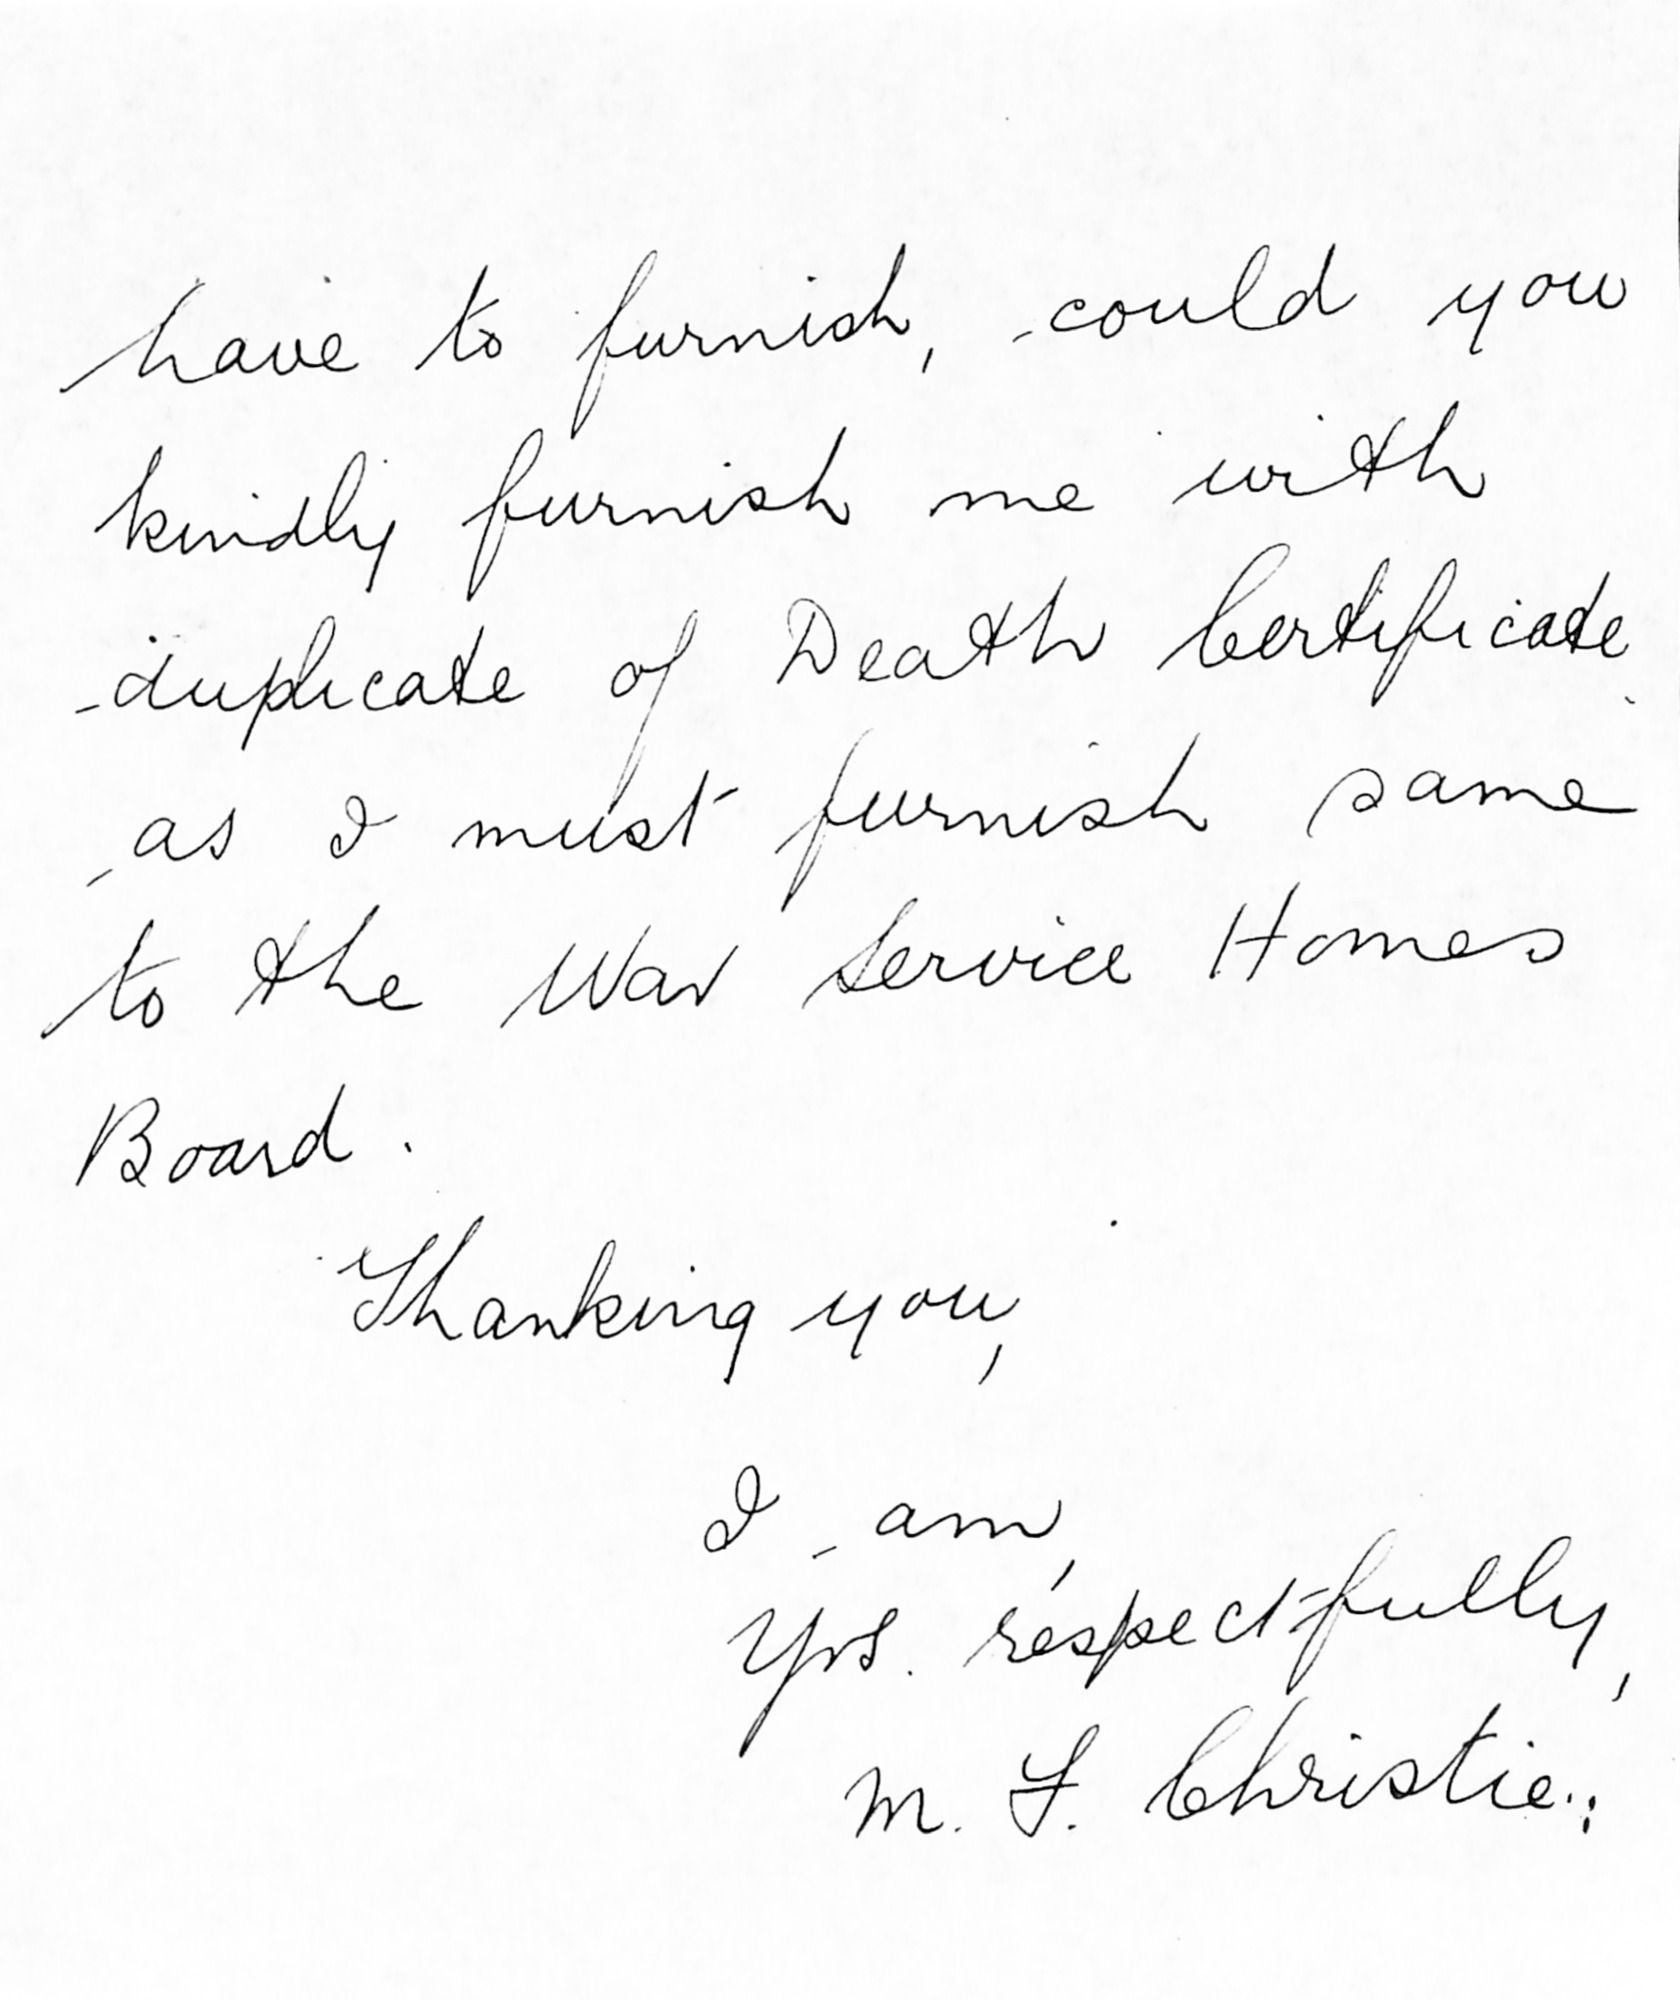 have to furnish, could you
kindly furnish me with
duplicate of Death Certificate
as I must furnish same
to the War Service Homes
Board.
Thanking you,
I am,
Yrs. respectfully,
M. F. Christie.